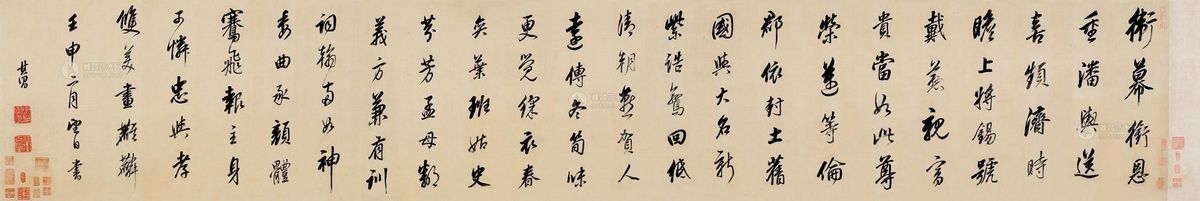 衛幕銜恩
重潘輿送
喜頻濟時
瞻上將錫號
戴慈親富
貴當如此尊
榮邁等倫
郡依封土舊
國與大名新
紫誥鸞回紙
清朝燕賀人
遠傳冬筍味
更覺綵衣春
奕葉班姑史
芬芳孟母鄰
義方兼有訓
詞翰兩如神
委曲承顏體
騫飛報主身
可憐忠與孝
雙美畫麒麟
壬申二月望日書
其昌